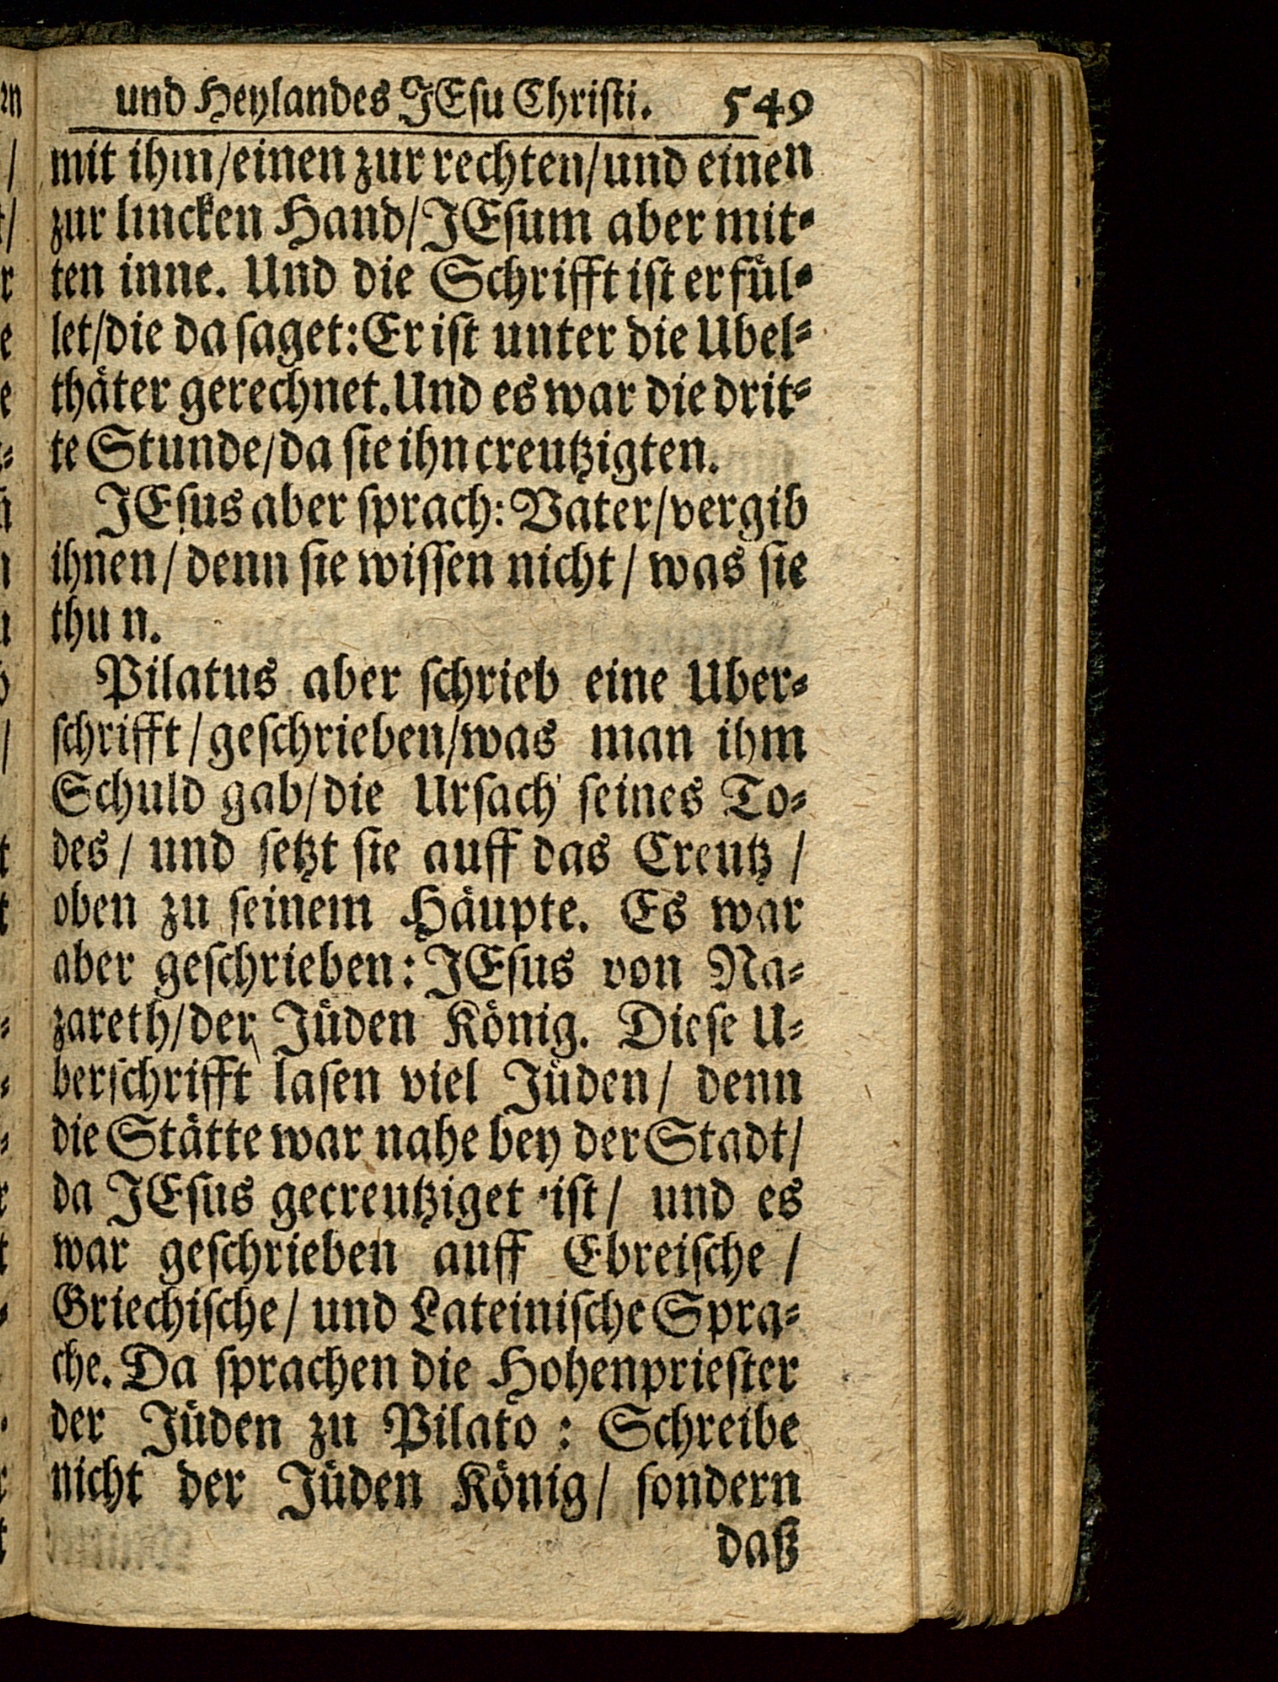 und Heylandes JEsu Christi. 549
mit ihm/einen zur rechten/und einen
zur lincken Hand/JEsum aber mit-
ten inne. Und die Schrifft ist erfül-
let/die da saget: Er ist unter die Ubel-
thäter gerechnet. Und es war die drit-
te Stunde/da sie ihn creutzigten.
JEsus aber sprach: Vater/vergib
ihnen/denn sie wissen nicht/was sie
thun.
Pilatus aber schrieb eine Uber-
schrifft/geschrieben/was man ihm
Schuld gab/die Ursach seines To-
des/und setzt sie auff das Creutz/
oben zu seinem Häupte. Es war
aber geschrieben: JEsus von Na-
zareth/der Jüden König. Diese U-
berschrifft lasen viel Jüden/denn
die Stätte war nahe bey der Stadt/
da JEsus gecreutziget ist/und es
war geschrieben auff Ebreische/
Griechische/und Lateinische Spra-
che. Da sprachen die Hohenpriester
der Jüden zu Pilato: Schreibe
nicht der Jüden König/sondern
daß